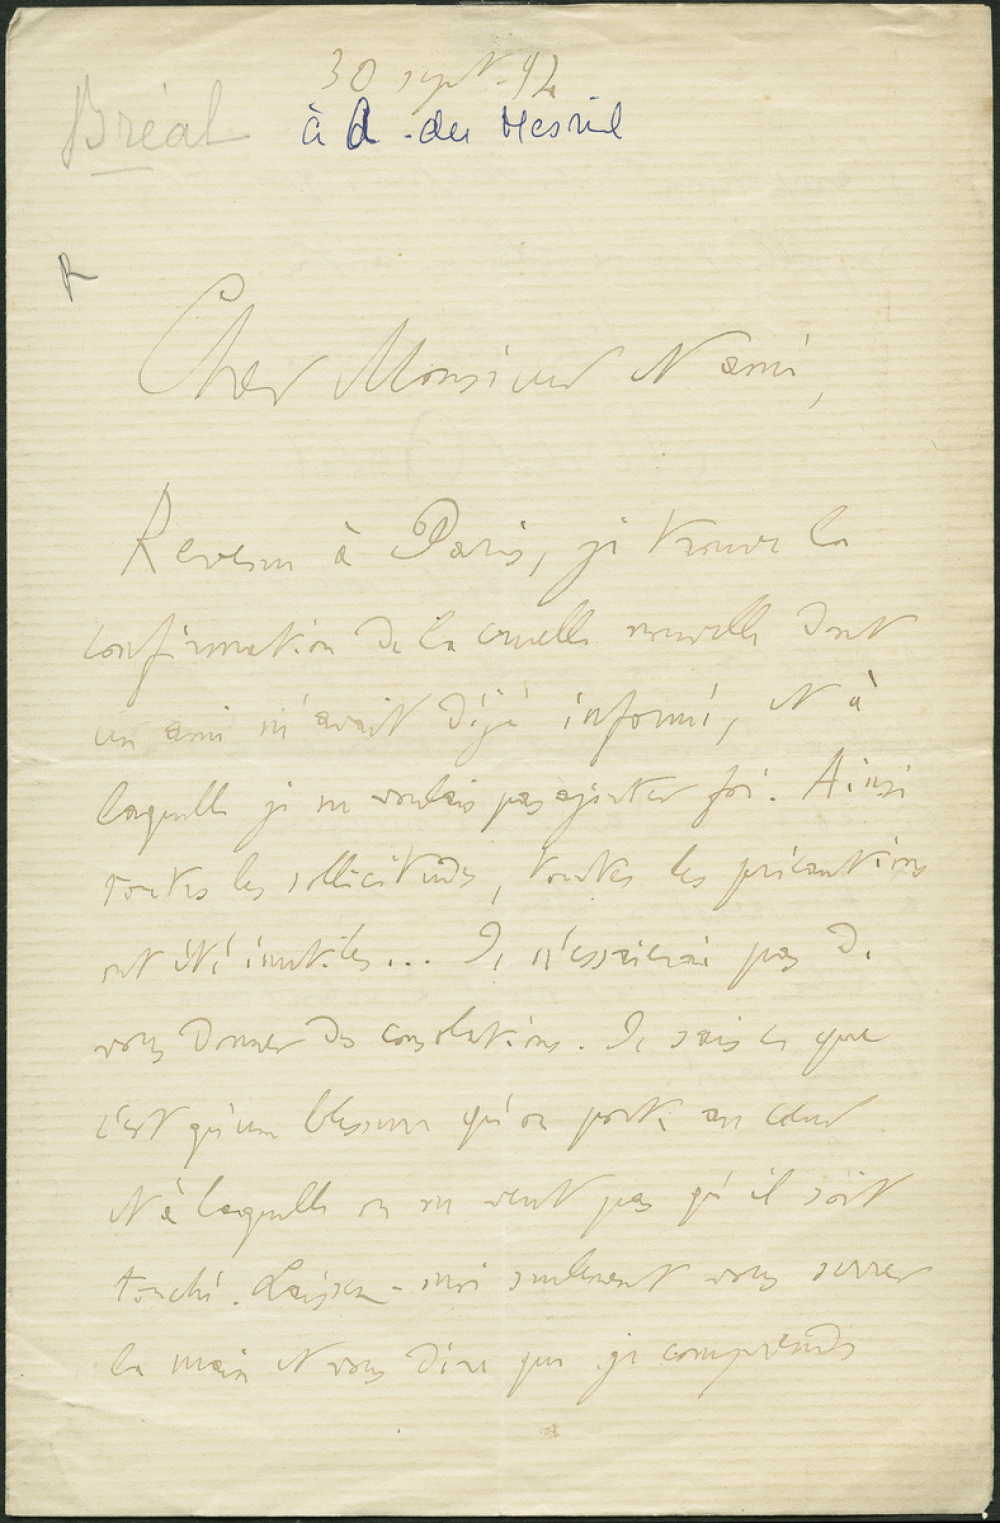 30 sept. 92
Bréal
à A. du Mesnil
R
Cher Monsieur et ami,
Revenu à Paris, je trouve la
confirmation de la cruelle nouvelle dont
un ami m'avait déjà informé, et à
laquelle je ne voulais pas ajouter foi. Ainsi
toutes les sollicitudes, toutes les précautions
ont été inutiles... Je n'essaierai pas de
vous donner des consolations. Je sais ce que
c'est qu'une blessure qu'on porte au cœur
et à laquelle on ne veut pas qu'il soit
touché. Laissez-moi seulement vous serrer
la main et vous dire que je comprends